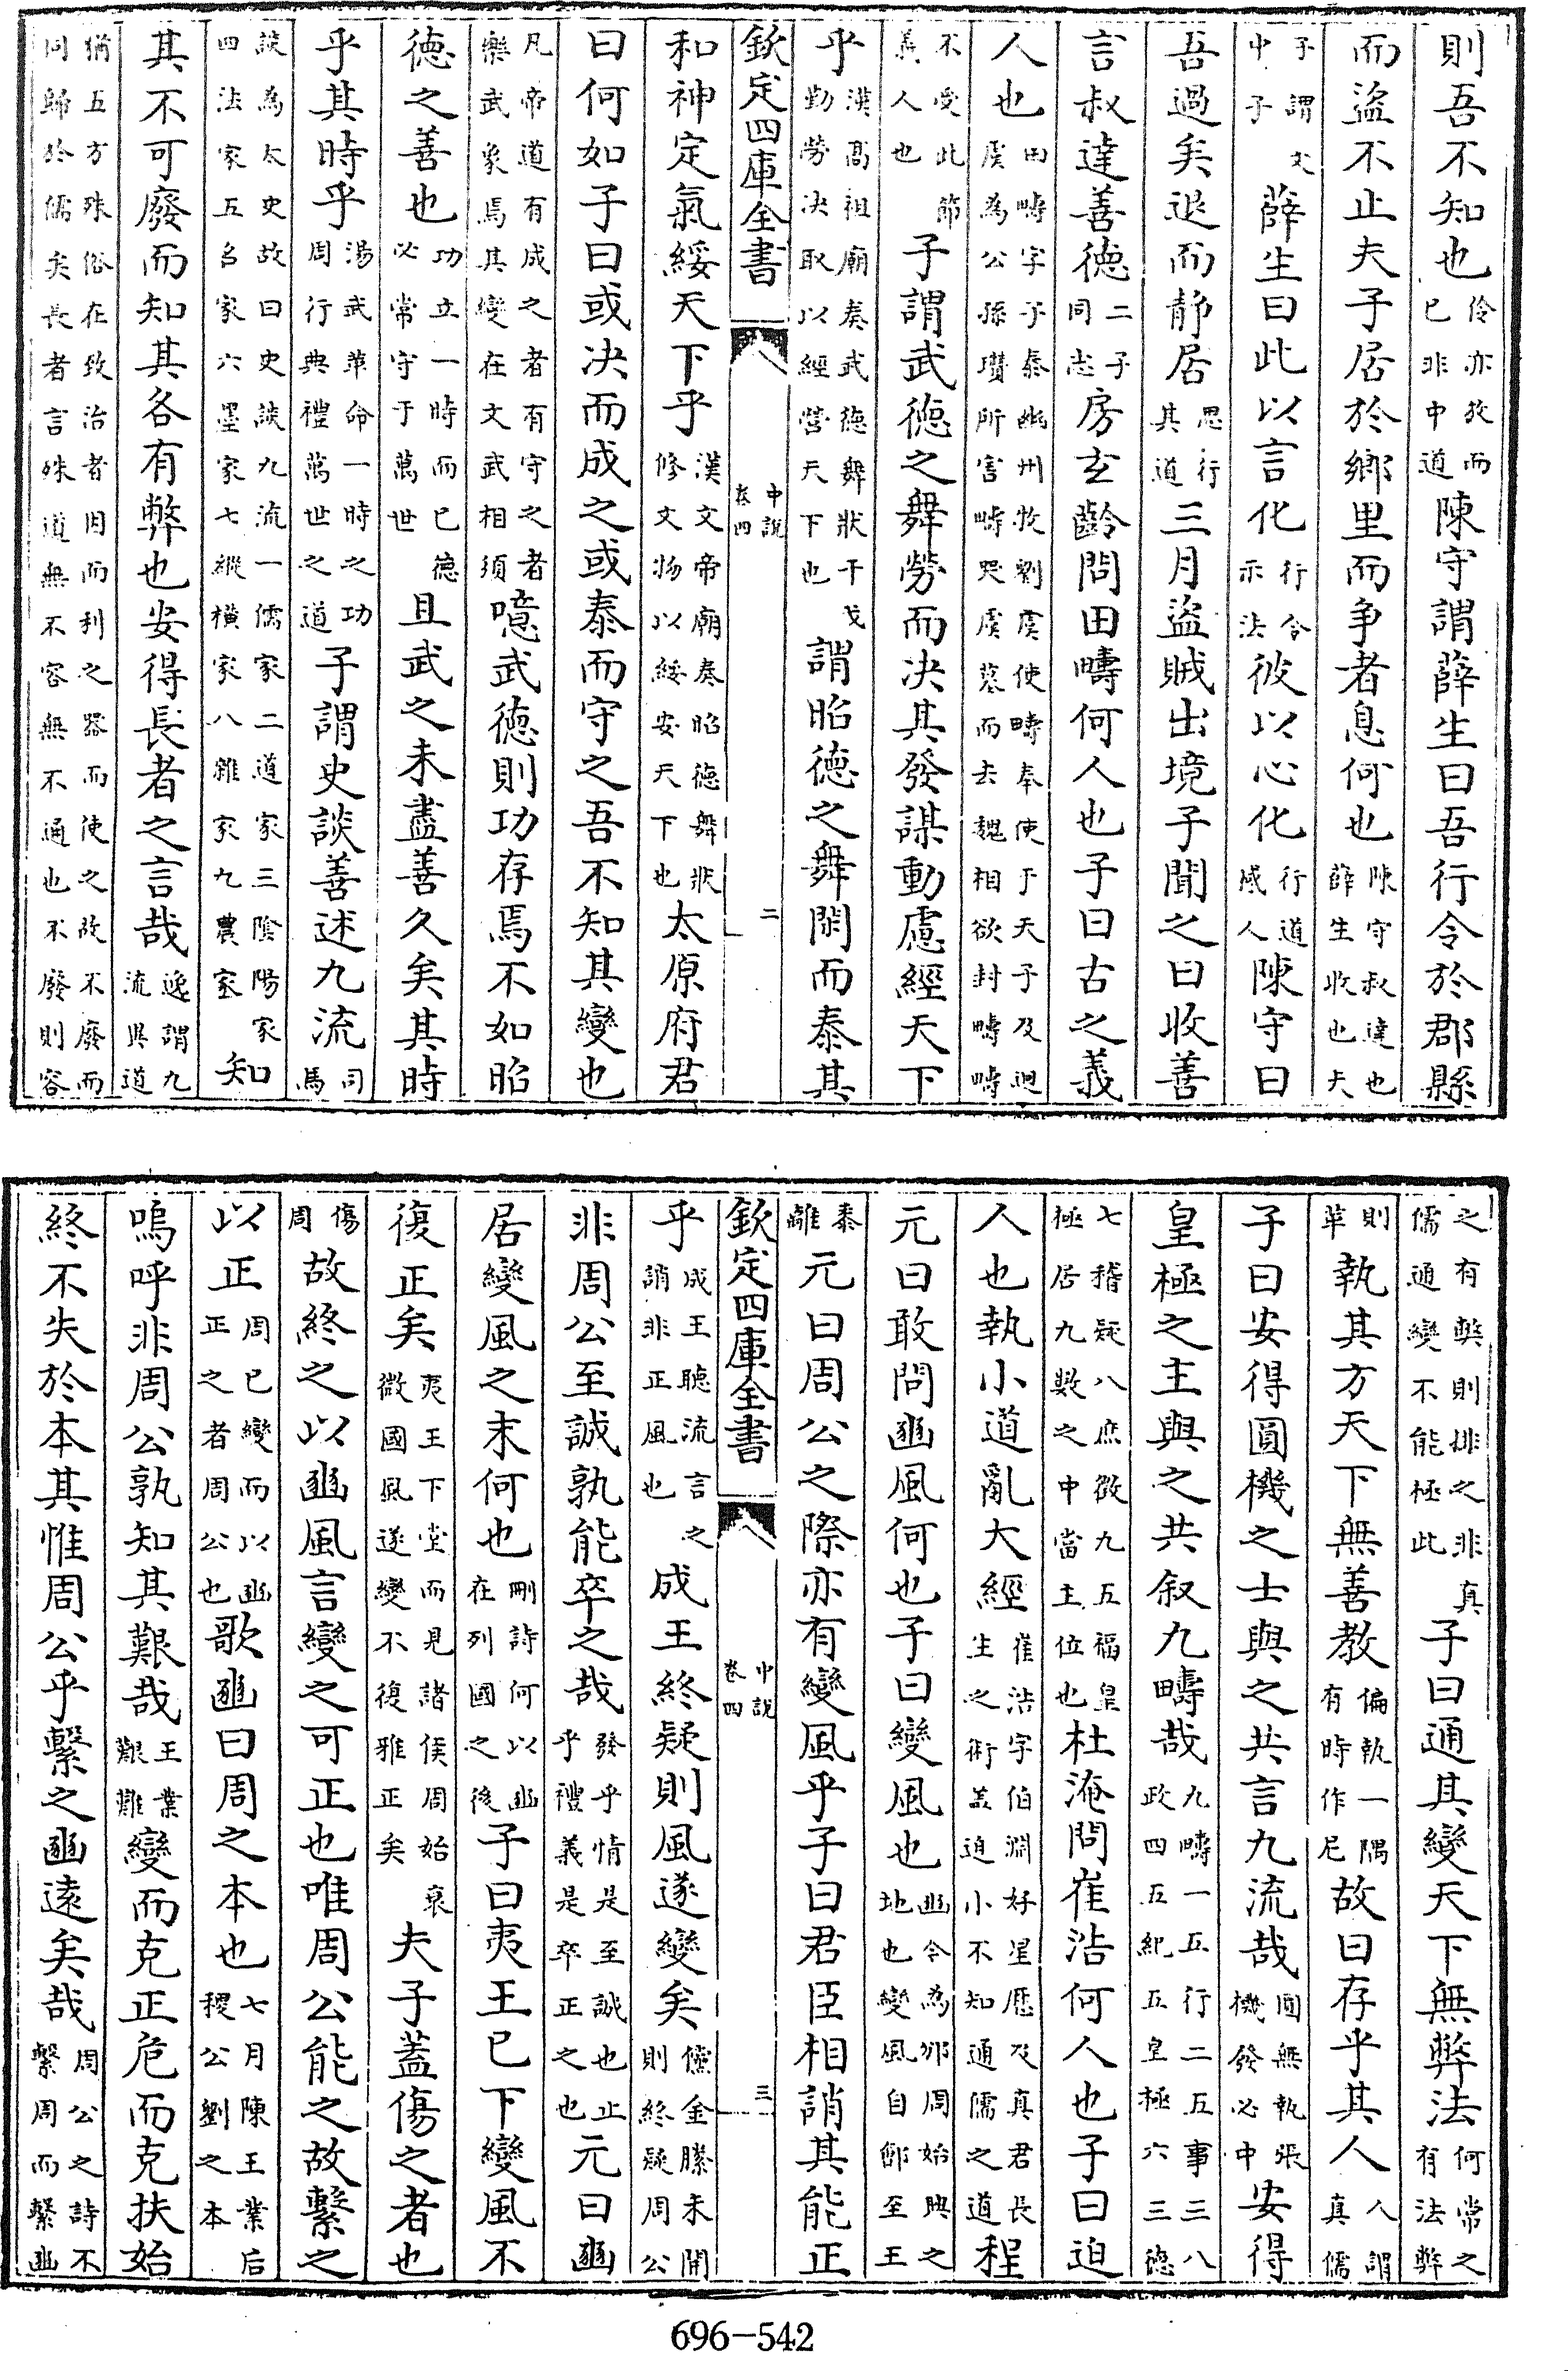 則吾不知也伶亦放而已非中道陳守謂薛生曰吾行令於郡縣
而盜不止夫子居於鄉里而争者息何也陳守叔達也薛生收也夫
子謂文中子薛生曰此以言化行令示法彼以心化行道感人陳守曰
吾過矣退而静居思行其道三月盜賊出境子聞之曰收善
言叔達善德二子同志房玄齡問田疇何人也子曰古之義
人也田疇字子泰幽州牧劉虞使疇奉使于天子及迴虞為公孫瓚所害疇哭虞墓而去魏相欲封疇疇
不受此節義人也子謂武德之舞勞而决其發謀動慮經天下
乎漢高祖廟奏武德舞狀干戈勤勞决取以經營天下也謂昭德之舞閑而泰其
欽定四庫全書 中説卷四 二
和神定氣綏天下乎漢文帝廟奏昭德舞狀修文物以綏安天下也太原府君
曰何如子曰或决而成之或泰而守之吾不知其變也
凡帝道有成之者有守之者樂武象焉其變在文武相須噫武德則功存焉不如昭
德之善也功立一時而已德必常守于萬世且武之未盡善久矣其時
乎其時乎湯武革命一時之功周行典禮萬世之道子謂史談善述九流司馬
談為太史故曰史談九流一儒家二道家三陰陽家四法家五名家六墨家七縱橫家八雜家九農家知
其不可廢而知其各有弊也安得長者之言哉逸謂九流與道
猶五方殊俗在致治者因而利之器而使之故不廢而同歸於儒矣長者言殊道無不容無不通也不廢則容
之有弊則排之非真儒通變不能極此子曰通其變天下無弊法何常之有法弊
則革執其方天下無善教偏執一隅有時作尼故曰存乎其人人謂真儒
子曰安得圓機之士與之共言九流哉圓無執張機發必中安得
皇極之主與之共叙九疇哉九疇一五行二五事三八政四五紀五皇極六三德
七稽疑八庶徵九五福皇極居九數之中當主位也杜淹問崔浩何人也子曰迫
人也執小道亂大經崔浩字伯淵好星厯及真君長生之術盖迫小不知通儒之道程
元曰敢問豳風何也子曰變風也豳今為邠周始興之地也變風自鄘至王
黍離元曰周公之際亦有變風乎子曰君臣相誚其能正
乎成王聽流言之誚非正風也成王終疑則風遂變矣儻金縢未開則終疑周公
欽定四庫全書 中説卷四 三
非周公至誠孰能卒之哉發乎情是至誠也止乎禮義是卒正之也元曰豳
居變風之末何也刪詩何以豳在列國之後子曰夷王已下變風不
復正矣夷王下堂而見諸侯周始衰微國風遂變不復雅正矣夫子蓋傷之者也
傷周故終之以豳風言變之可正也唯周公能之故繫之
以正周已變而以豳正之者周公也歌豳曰周之本也七月陳王業后稷公劉之本
嗚呼非周公孰知其艱哉王業艱難變而克正危而克扶始
終不失於本其惟周公乎繫之豳遠矣哉周公之詩不繫周而繫豳
696-542